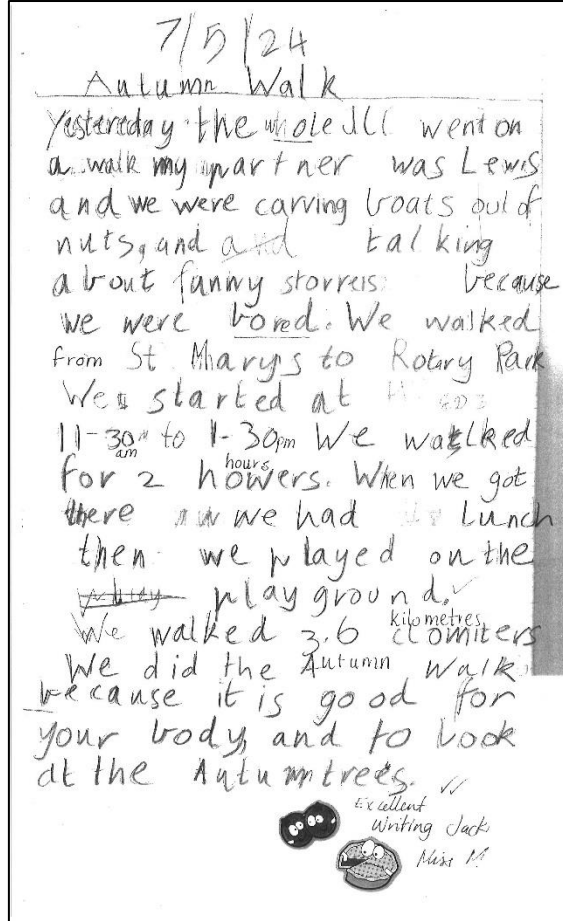 7/5/24
Autumn Walk
Yestereday the whole JLC went on
a walk my partner was Lewis
and we were carving boats out of
nuts, and and talking
about funny storreis because
we were bored. We walked
from St Marys to Rotary Park
We started at
11-30am to 1-30pm We walked
for 2 howers. hours When we got
there we had Lunch
then we played on the
play ground.
We walked 3.6 clomiters kilometres
We did the Autumn Walk
because it is good for
your body, and to look
at the Autumn trees.
Excellent
Writing Jack
Miss M